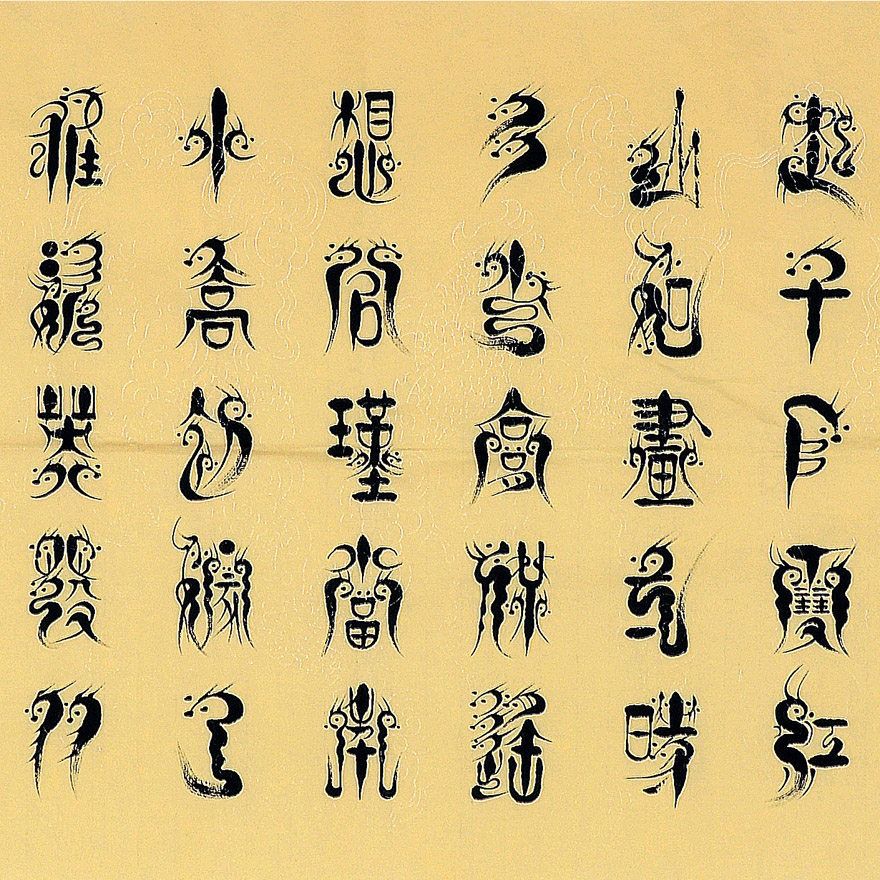 起千堆雪江
山如畫一時
多少豪傑遙
想公瑾當年
小喬初嫁了
雄姿英發羽